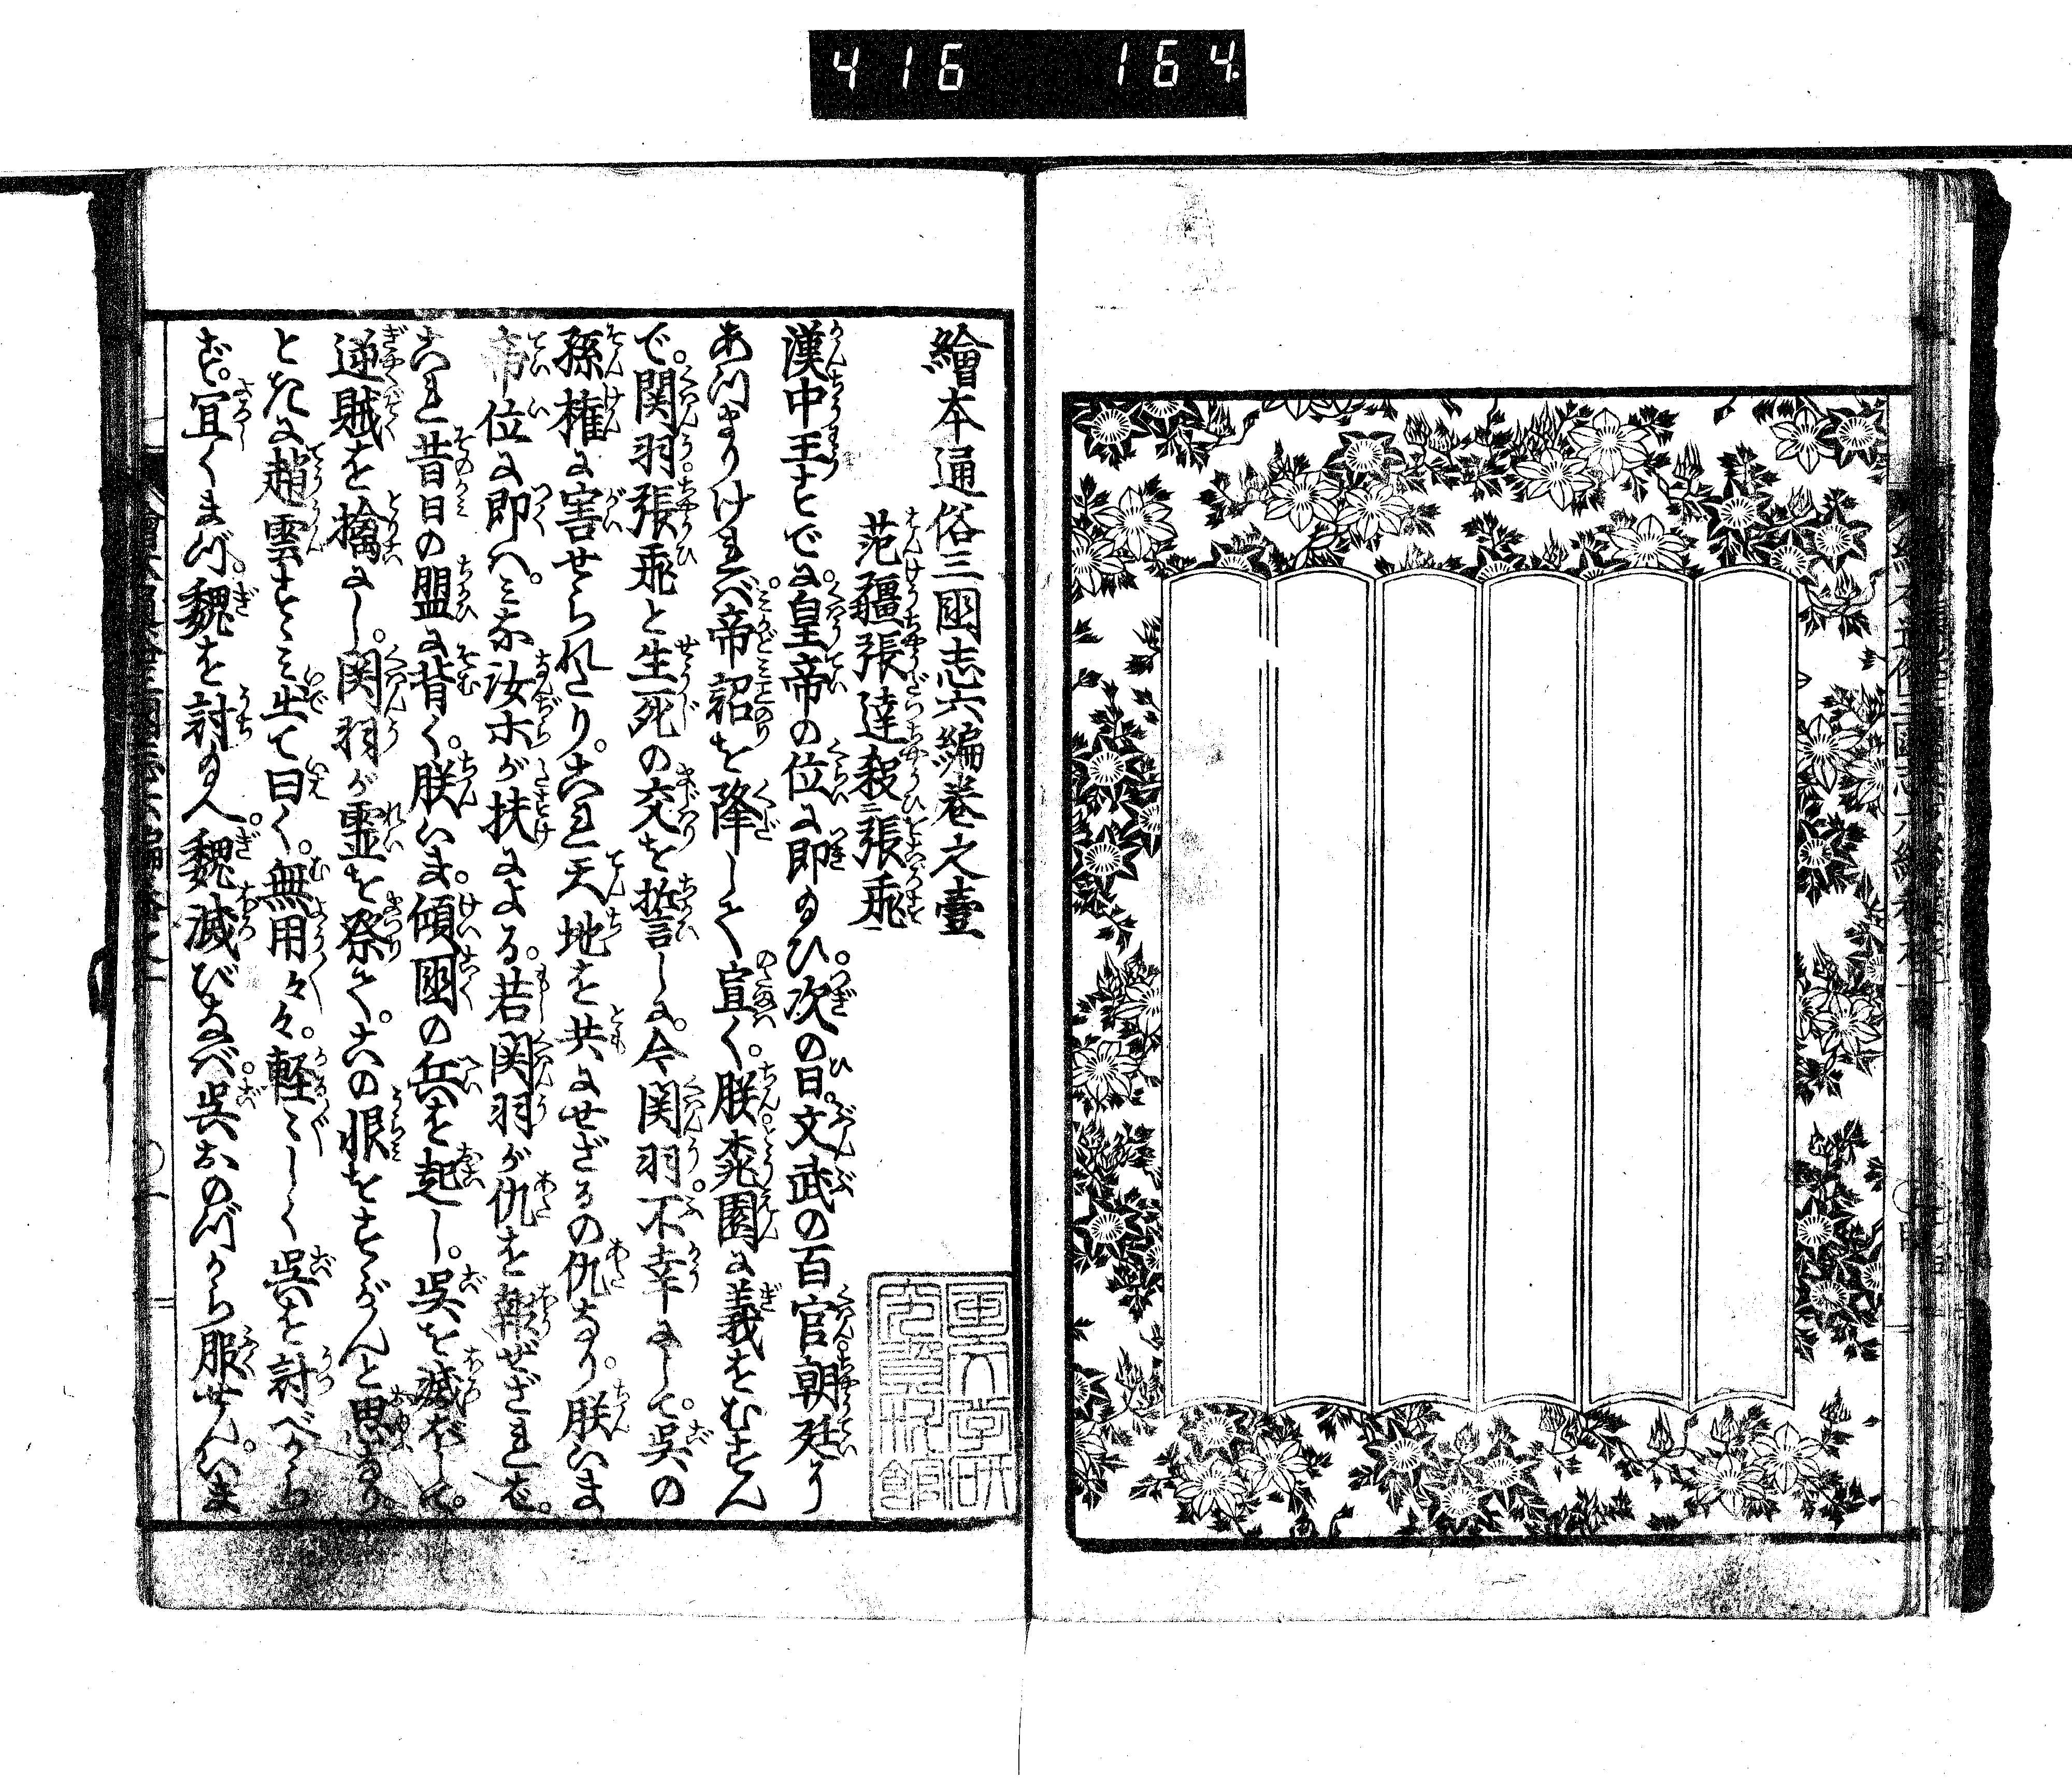 416 164
繪本通俗三國志六編巻之壹
范疆張達殺二張飛一
漢中王すでに皇帝の位に即給ひ。次の日。文武の百官朝廷に
あつまりければ。帝詔を降して宣く。朕。桃園に義をむすん
で。関羽。張飛と生死の交を誓しに。今関羽。不幸にして。呉の
孫権に害せられたり。これ天地を共にせざるの仇なり。朕いま
帝位に即くハ。ミな汝ホが扶による。若関羽が仇を報ぜざれば。
これ昔日の盟に背く。朕いま。傾國の兵を起し。呉を滅ぼして。
逆賊を擒にし。関羽が霊を祭て。この恨をすゝがんと思なり。
ときに趙雲すゝミ出て曰く。無用々々。軽々しく呉を討べから
ず。宜くまづ。魏を討給へ。魏滅びなば。呉おのづから服せん。いま